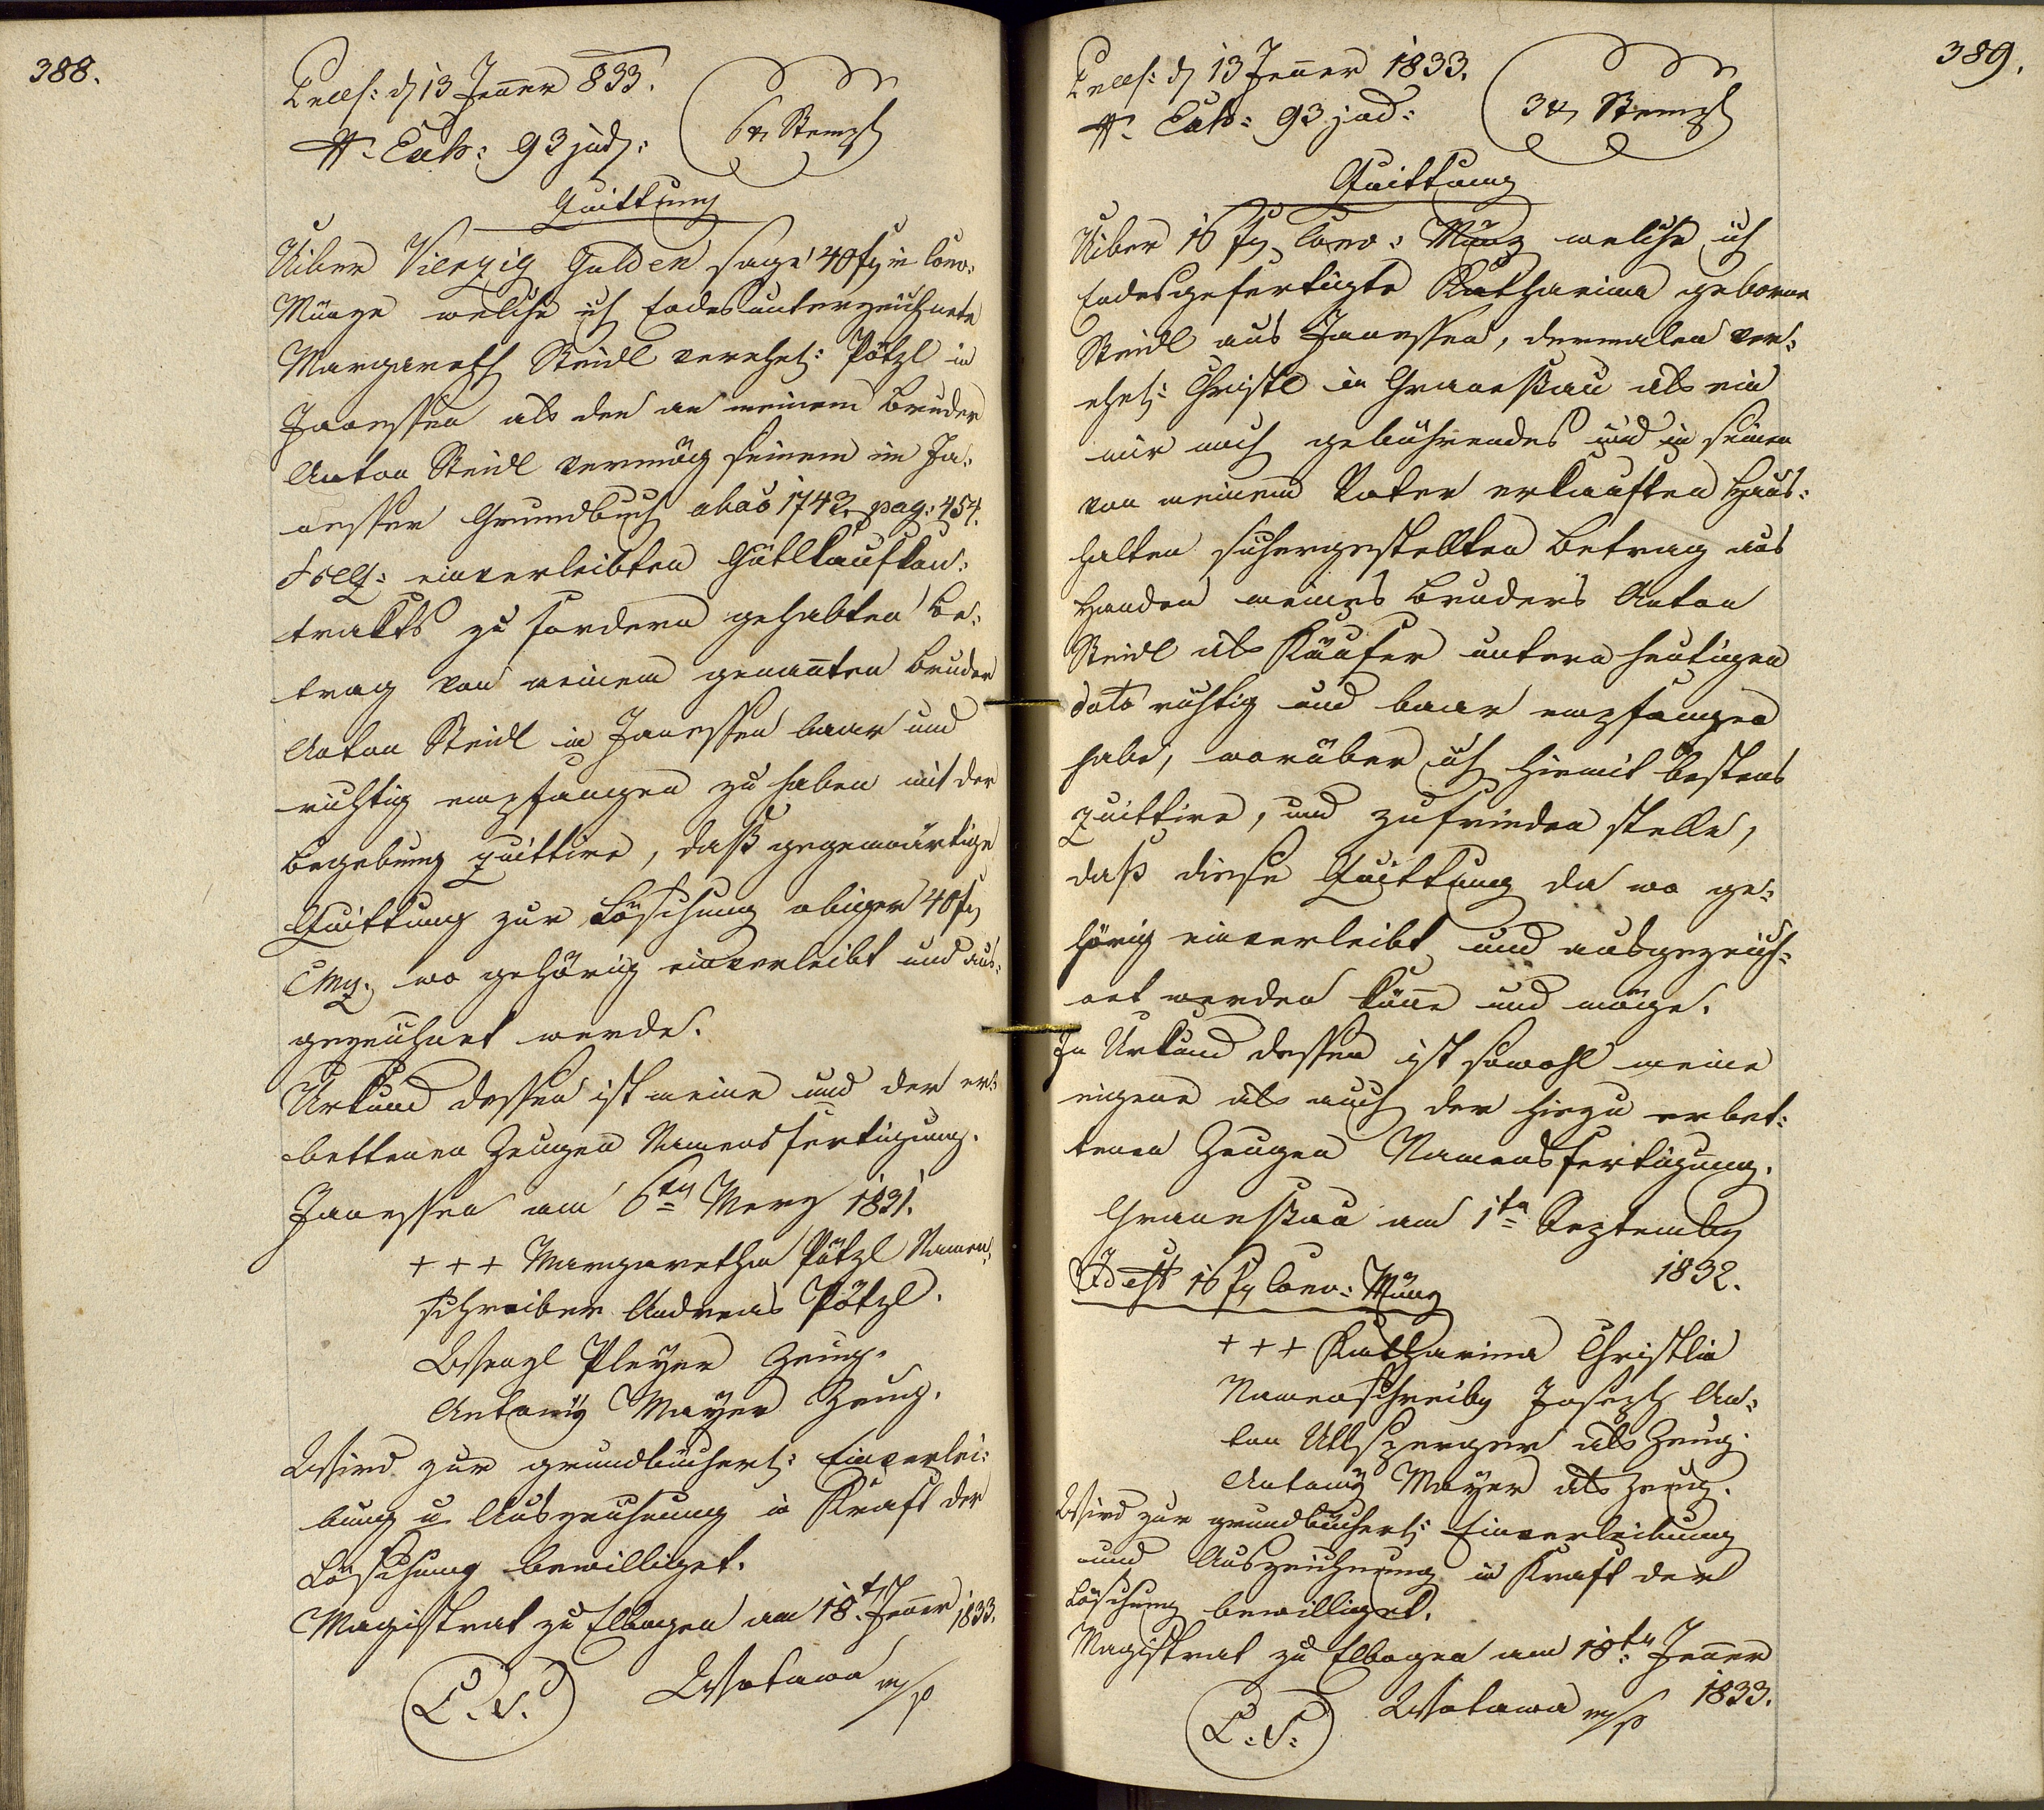 388.
Praes: d 13 Jeñer 833.
N. Exh: 93 jud:
6 x Stempl
Quittung
Uiber Vierzig Gulden sage 40 f in Conv:
Münze welche ich Endesunterzeichnete
Margareth Steidl verehel: Pötzl in
Janessen als den an meinem Bruder
Anton Steidl vermög seinem im Ja-
nesser Grundbuch abao 1742. pag: 454.
einverleibten Gütlkaufkon-
trakts zu fordern gehabten Be-
trag von meinem genañten Bruder
Anton Steidl in Janessen baar und
richtig empfangen zu haben mit der
Begebung quittire, daß gegenwärtige
Quittung zur Löschung obiger 40 f
CMz. wo gehörig einverleibt und aus-
gezeichnet werde.
Urkund dessen ist meine und der er-
bettenen Zeugen Namensfertigung.
Janessen am 6ten Merz 1831.
+++ Margaretha Pötzl Namen-
schreiber Andreas Pötzl.
Wenzl Pleyer Zeug.
Antony Mayer Zeug.
Wird zur grundbücherl: Einverlei-
bung u Auszeichnung in Kraft der
Löschung bewilliget.
Magistrat zu Elbogen am 18t Jeñer 1833.
L. S. Wotawa m/p
389.
Praes: d 13 Jeñer 1833.
N. Exh: 93 jud:
3 x Stempl
Quittung
Uiber 16 f Conv: Münz welche ich
Endesgefertigte Katharina geborne
Steidl aus Janessen, dermalen ver-
ehel: Christl in Granesau als ein
mir noch gebührendes und in seinen
von meinem Vater erkauften Haus-
halten sichergestellten Betrag aus
Handen meines Bruders Anton
Steidl als Käufer untern heutigen
dato richtig und baar empfangen
habe, worüber ich hiemit bestens
quittire, und zufrieden stelle,
daß diese Quittung da wo ge-
hörig einverleibt und ausgezeich-
net werden köñe und möge.
In Urkund dessen ist sowohl meine
eigene als auch der hiezu erbet-
tenen Zeugen Namensfertigung.
Granesau am 1ten September
1832.
Id est 16 f Conv: Münz
+++ Katharina Christlin
Namenschreiber Joseph An-
ton Ullsperger als Zeug.
Antony Mayer als Zeug.
Wird zur grundbücherl: Einverleibung
und Auszeichnung in Kraft der
Löschung bewilliget.
Magistrat zu Elbogen am 18ten Jeñer
1833.
L. S. Wotawa m/p